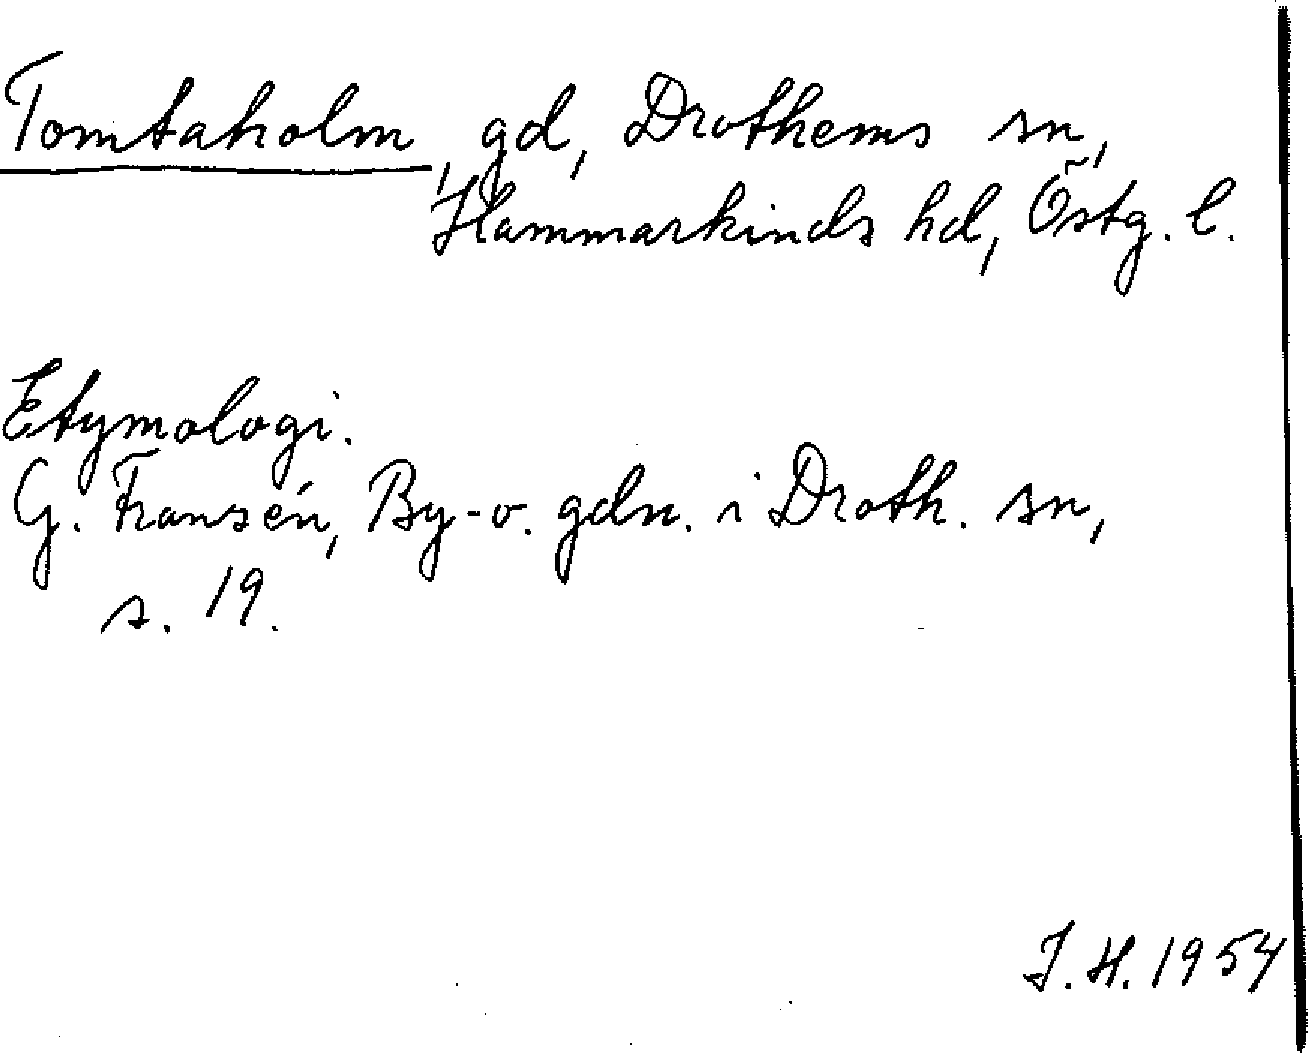 Tomtaholm, gd, Drothems sn,
Hammarkinds hd, Östg. l.
Etymologi.
G. Fransén, By- o. gdn. i Droth. sn,
s. 19.
J. H. 1954